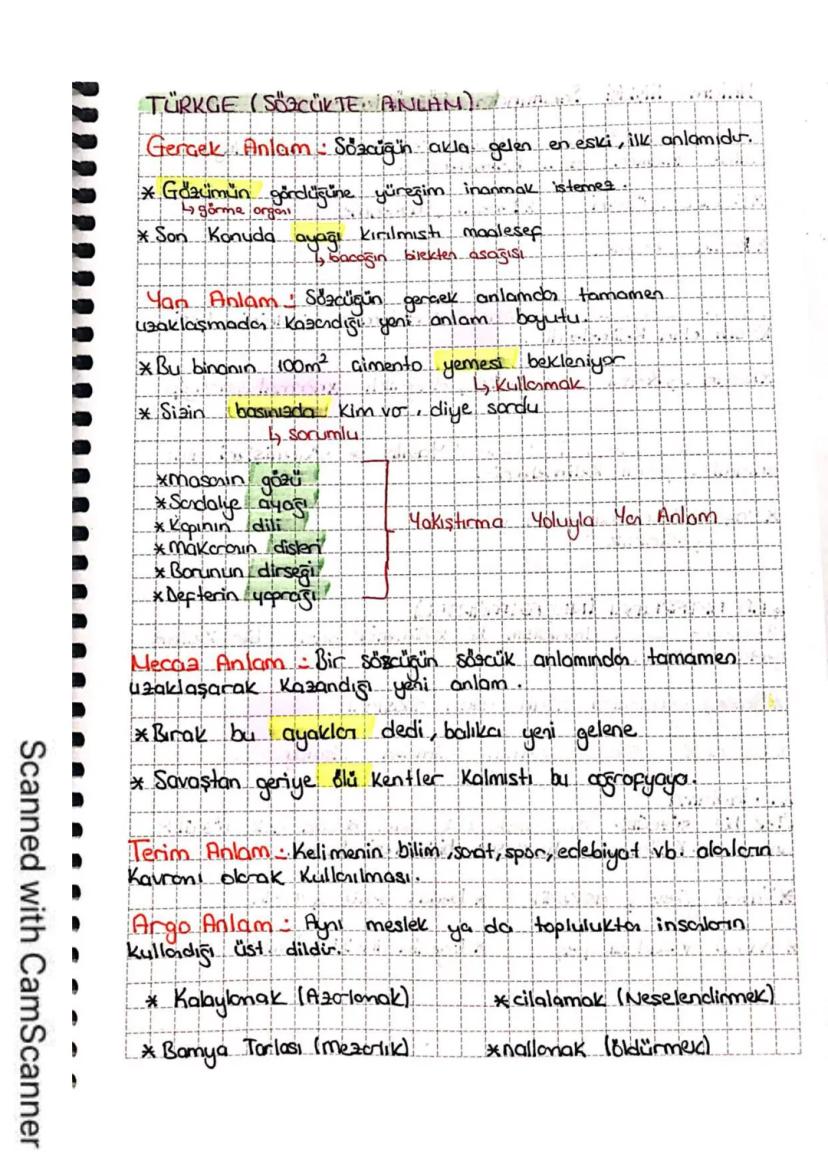 TÜRKÇE (SÖZCÜKTE ANLAM)
Gerçek Anlam : Sözcüğün akla gelen en eski, ilk anlamıdır.
* Gözümün gördüğüne yüreğim inanmak istemez.
↳ görme organı
* Son Konuda ayağı kırılmıştı maalesef
↳ bacağın bilekten aşağısı
Yan Anlam : Sözcüğün gerçek anlamdan tamamen
uzaklaşmadan Kazandığı yeni anlam boyutu.
* Bu binanın 100m² çimento yemesi bekleniyor
↳ Kullanmak
* Sizin başınızda kim var, diye sordu
↳ sorumlu
* masanın gözü
* Sandalye ayağı
* Kapının dili
* Makaranın dişleri
* Borunun dirseği
* Defterin yaprağı
Yakıştırma Yoluyla Yan Anlam
Mecaz Anlam : Bir sözcüğün sözcük anlamından tamamen
uzaklaşarak Kazandığı yeni anlam.
* Bırak bu ayakları dedi, balıkçı yeni gelene
* Savaştan geriye ölü kentler Kalmıştı bu coğrafyaya.
Terim Anlam : Kelimenin bilim, sanat, spor, edebiyat vb. alanların
Kavramı olarak Kullanılması.
Argo Anlam : Aynı meslek ya da topluluktan insanların
Kullandığı üst dildir.
* Kalaylamak (Azarlamak)
* cilalamak (Neşelendirmek)
* Bamya Tarlası (mezarlık)
* nallamak (öldürmek)
Scanned with CamScanner